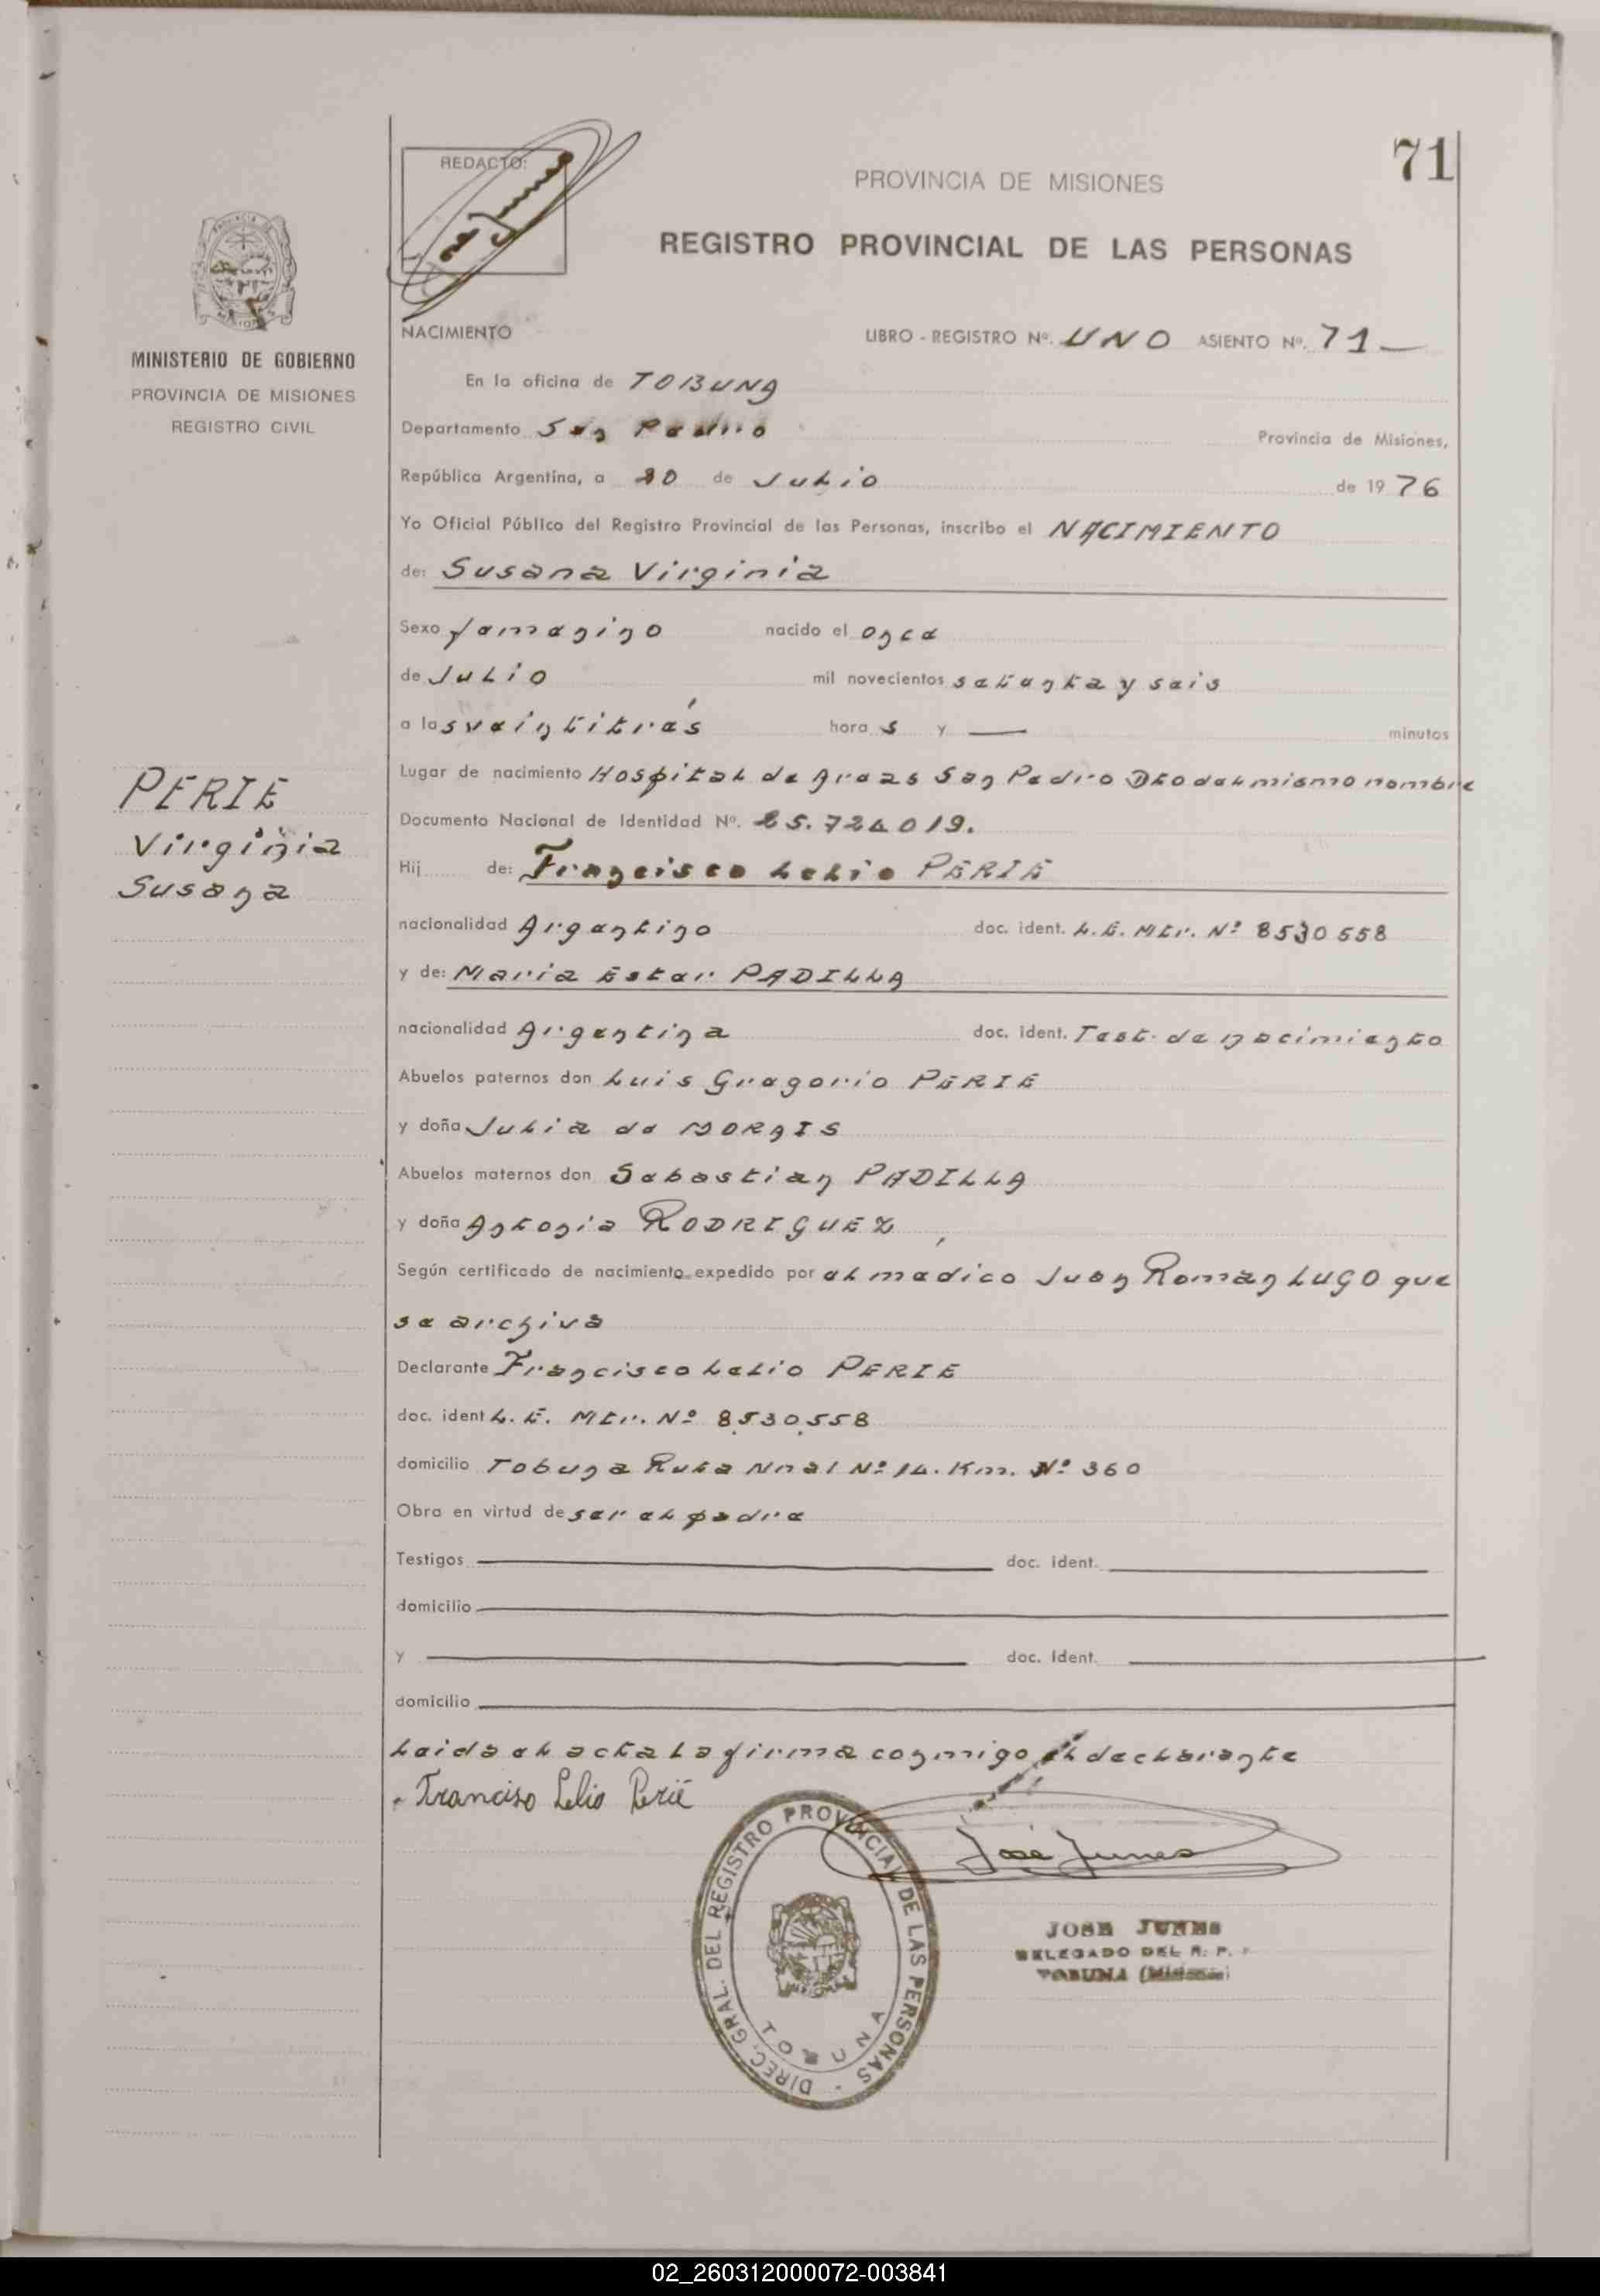 71
REDACTO:
PROVINCIA DE MISIONES
REGISTRO PROVINCIAL DE LAS PERSONAS
MINISTERIO DE GOBIERNO
PROVINCIA DE MISIONES
REGISTRO CIVIL
NACIMIENTO
LIBRO - REGISTRO Nº. UNO ASIENTO Nº. 71
En la oficina de TOBUNA
Departamento San Pedro Provincia de Misiones,
República Argentina, a 20 de Julio de 1976
Yo Oficial Público del Registro Provincial de las Personas, inscribo el NACIMIENTO
de: Susana Virginia
Sexo femenino nacido el once
de Julio mil novecientos setenta y seis
a las veintitrés horas y — minutos
Lugar de nacimiento Hospital de Area San Pedro Dto del mismo nombre
PERIE
Virginia
Susana
Documento Nacional de Identidad Nº. 25.724019.
Hij de: Francisco Lelio PERIE
nacionalidad Argentino doc. ident. L.E. Mtr. Nº 8530558
y de: Maria Ester PADILLA
nacionalidad Argentina doc. ident. Test. de nacimiento
Abuelos paternos don Luis Gregorio PERIE
y doña Julia de MORAIS
Abuelos maternos don Sebastian PADILLA
y doña Antonia RODRIGUEZ
Según certificado de nacimiento expedido por el medico Juan Roman LUGO que
se archiva
Declarante Francisco Lelio PERIE
doc. ident L.E. Mtr. Nº 8530558
domicilio Tobuna Ruta Nnal Nº 14. Km. Nº 360
Obra en virtud de ser el padre
Testigos doc. ident.
domicilio
y doc. ident.
domicilio
Leida el acta la firma conmigo el declarante
Francisco Lelio Perié
José Junes
DIREC. GRAL. DEL REGISTRO PROVINCIAL DE LAS PERSONAS -
TOBUNA
JOSE JUNES
DELEGADO DEL R. P.
TOBUNA (Misiones)
02_260312000072-003841